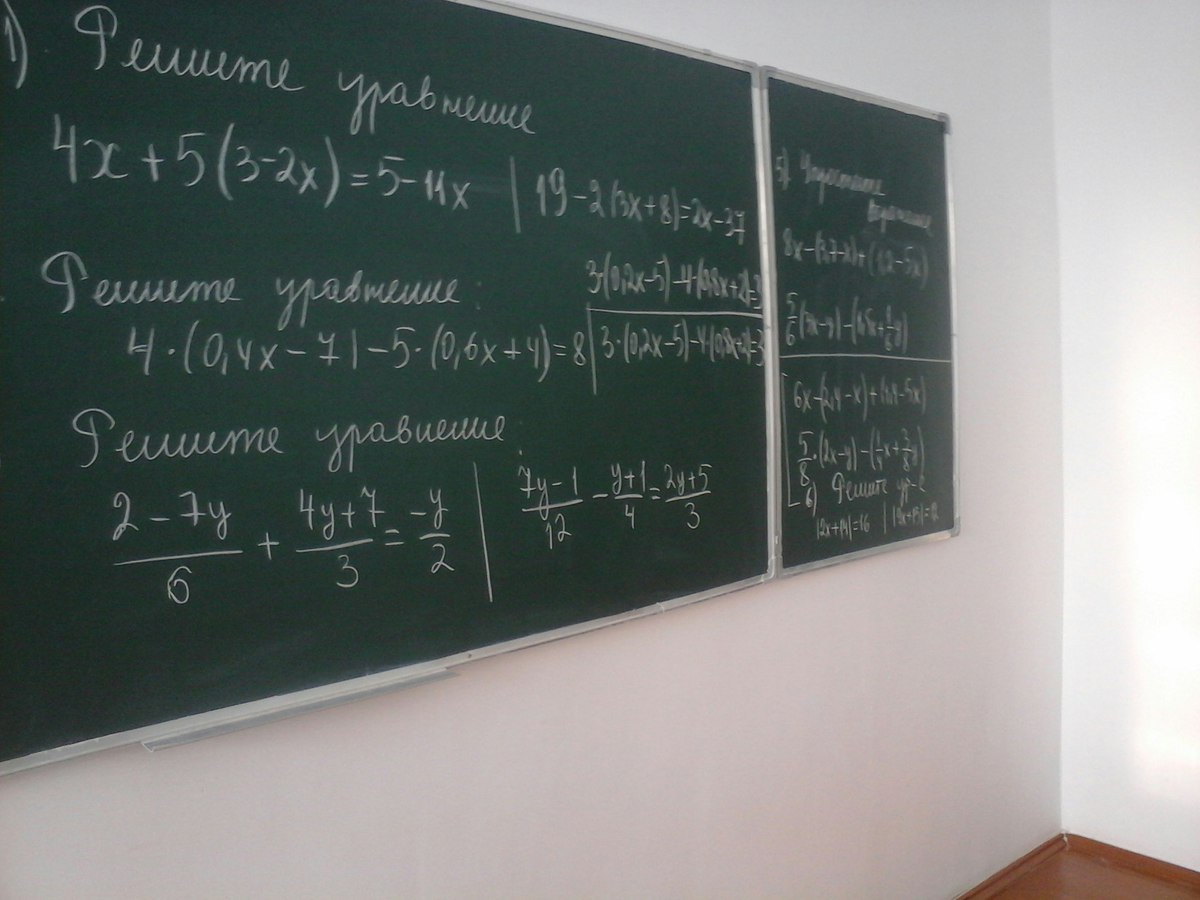 1) Решите уравнение
4x + 5(3-2x) = 5-11x | 19-2(3x+8)=2x-37
Решите уравнение:
3·(0,2x-5)-4·(0,8x+2)=3
4·(0,4x-7)-5·(0,6x+4)=8 | 3·(0,2x-5)-4·(0,8x+2)=3
Решите уравнение:
2-7y/6 + 4y+7/3 = -y/2 | 7y-1/12 - y+1/4 = 2y+5/3
5) Упростите
выражение
6x-(2,4-x)+(
-5x)
5/8·(2x-y)-(
x+3/8y)
6) Решите ур-е